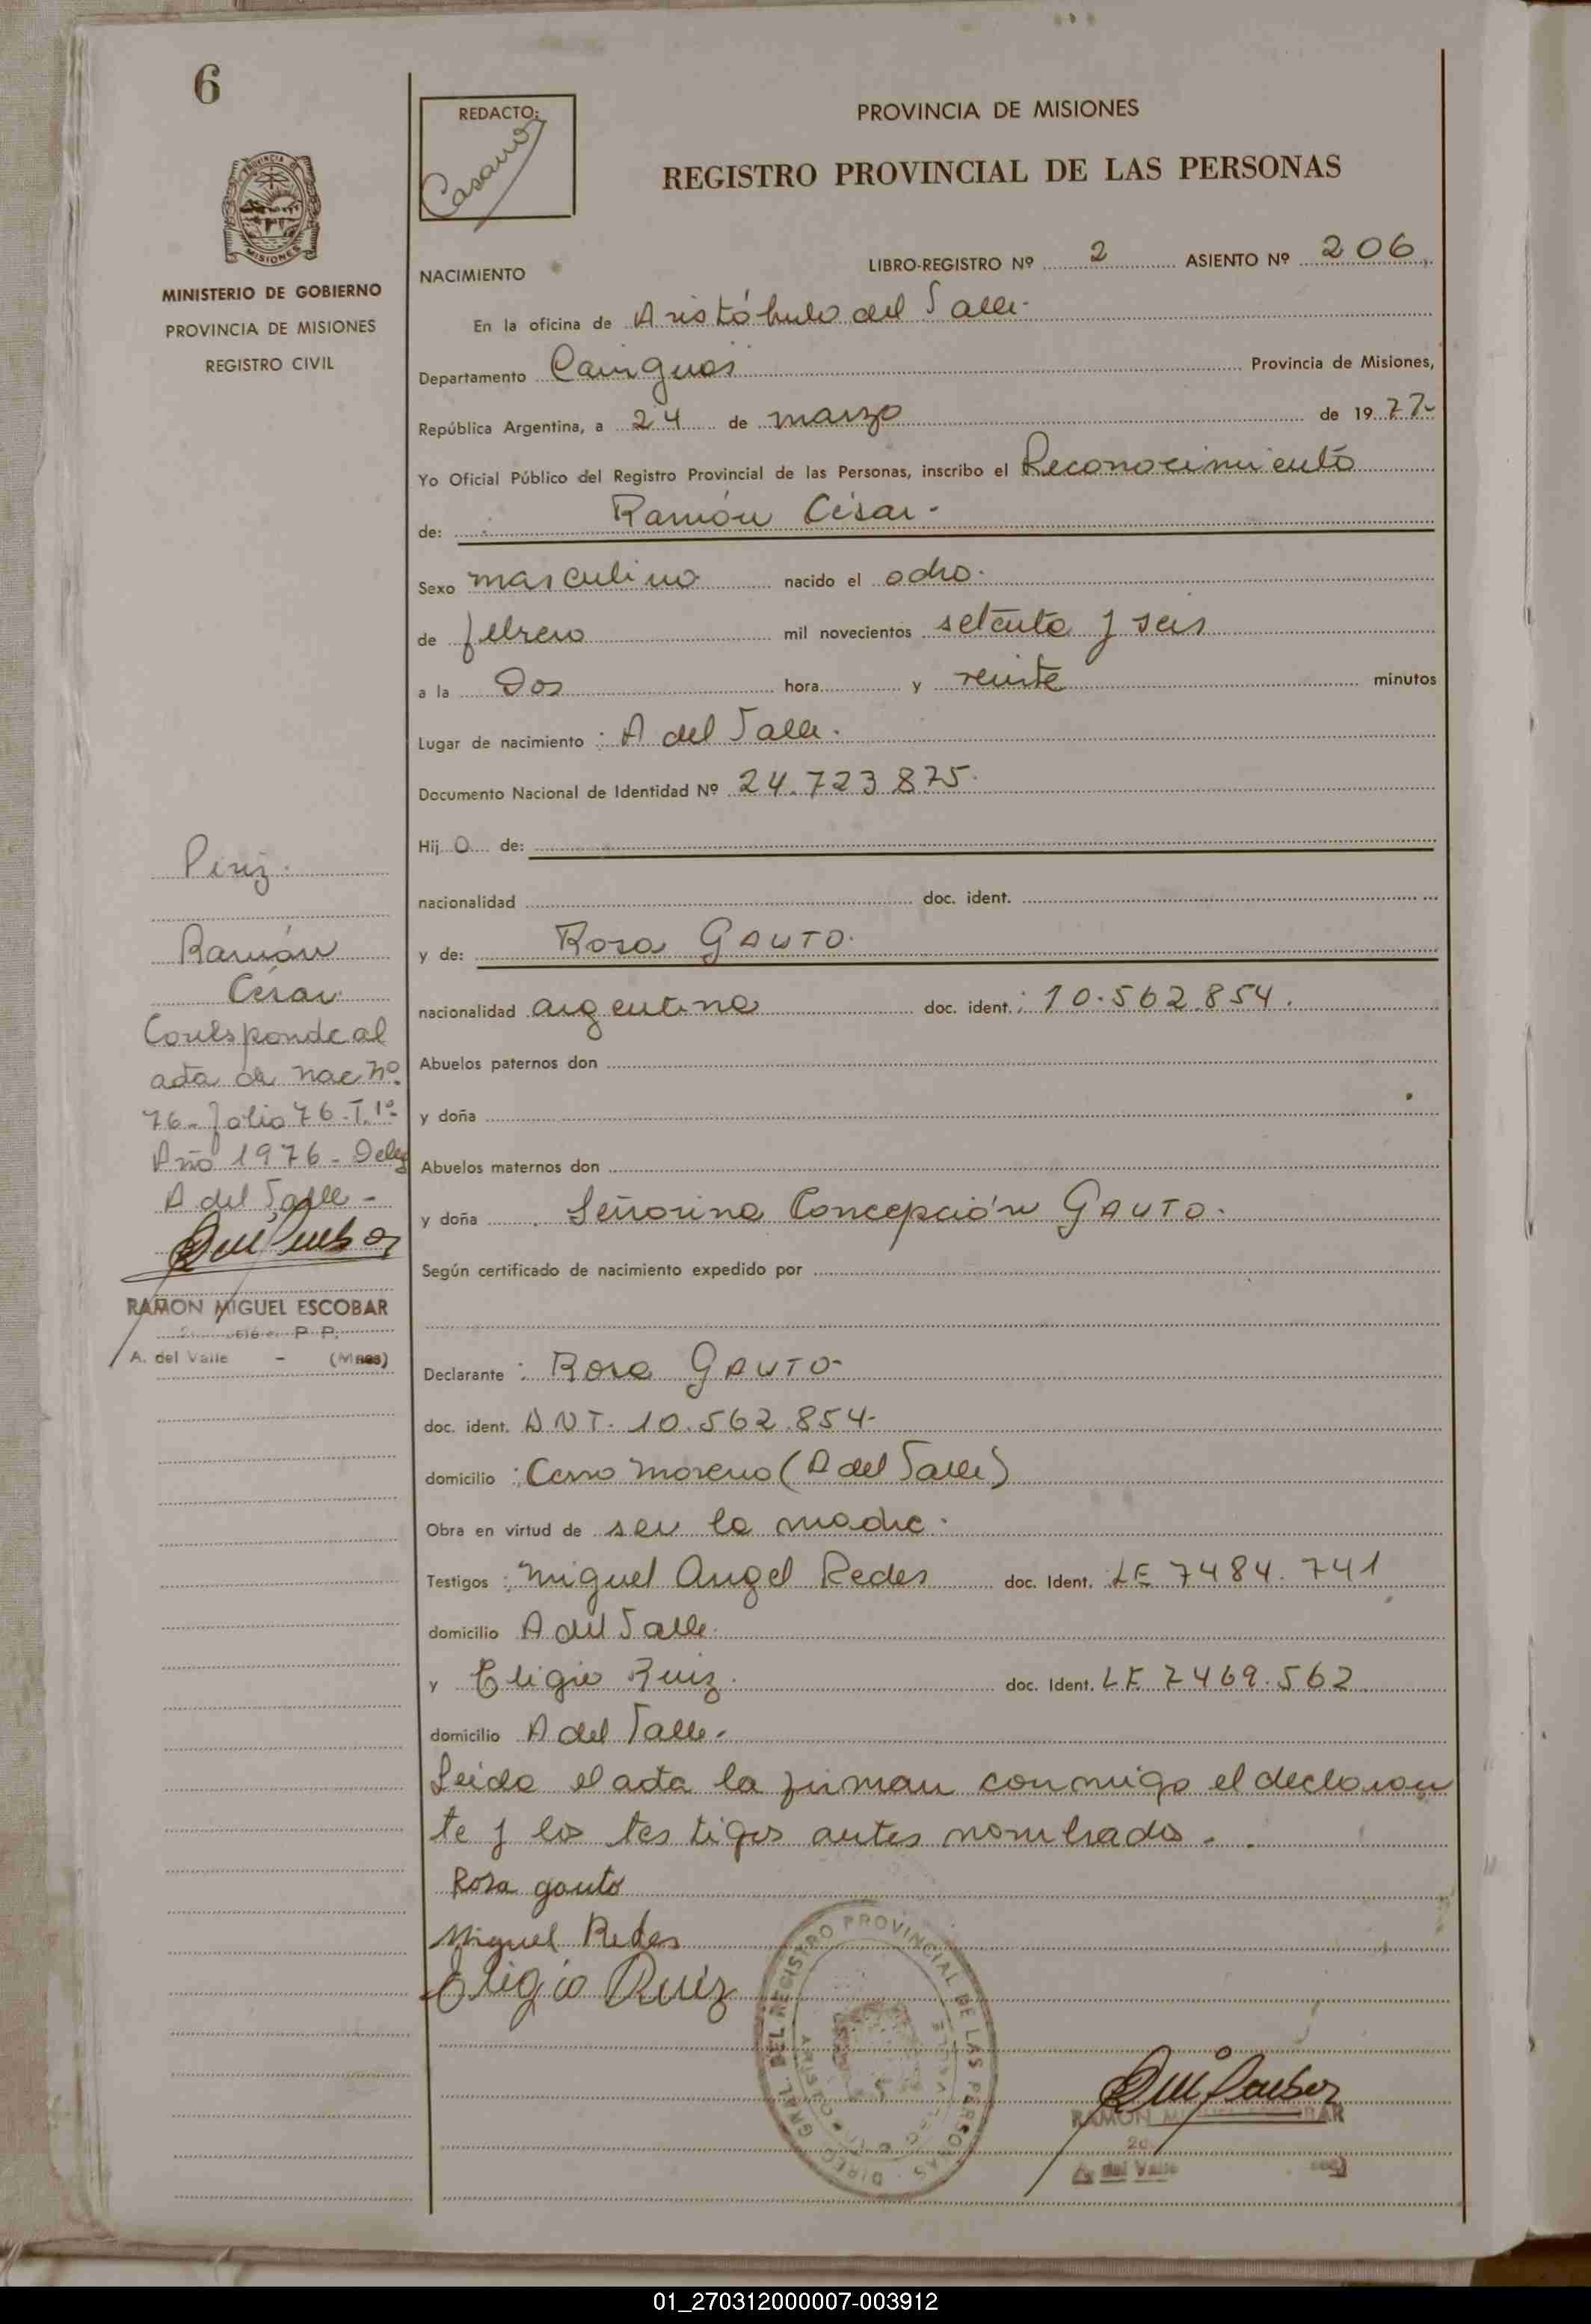 6
REDACTO:
PROVINCIA DE MISIONES
REGISTRO PROVINCIAL DE LAS PERSONAS
MINISTERIO DE GOBIERNO
PROVINCIA DE MISIONES
REGISTRO CIVIL
LIBRO-REGISTRO Nº 2 ASIENTO Nº 206
NACIMIENTO
En la oficina de Aristóbulo del Valle-
Departamento Cainguás Provincia de Misiones,
República Argentina, a 24 de marzo de 1977-
Yo Oficial Público del Registro Provincial de las Personas, inscribo el Reconocimiento
de: Ramón César-
Sexo masculino nacido el ocho.
de febrero mil novecientos setenta y seis
a la Dos hora y veinte minutos
Lugar de nacimiento: A del Valle.
Documento Nacional de Identidad Nº 24.723.875.
Hijo de:
nacionalidad doc. ident.
y de: Rosa GAUTO.
nacionalidad argentina doc. ident.: 10.562.854.
Abuelos paternos don
y doña
Abuelos maternos don
y doña Señorina Concepción GAUTO.
Según certificado de nacimiento expedido por
Declarante: Rosa GAUTO-
doc. ident. DNI. 10.562.854-
domicilio: Cerro Moreno (A del Valle)
Obra en virtud de ser la madre.
Testigos: Miguel Angel Redes doc. Ident. LE 7484.741
domicilio A del Valle.
y Eligio Ruiz. doc. Ident. LE 7469.562
domicilio A del Valle.
Leida el acta la firman conmigo el declaran
te y los testigos antes nombrados.
Rosa gauto
Miguel Redes
Eligio Ruiz
DIREC. GRAL. DEL REGISTRO PROVINCIAL DE LAS PERSONAS
RAMON MIGUEL ESCOBAR
A. del Valle
Ramón
César
Corresponde al
acta de nac nº
76- folio 76-T.1º-
Año 1976- Deleg
A del Valle-
RAMON MIGUEL ESCOBAR
A. del Valle - (Mnes)
01_270312000007-003912